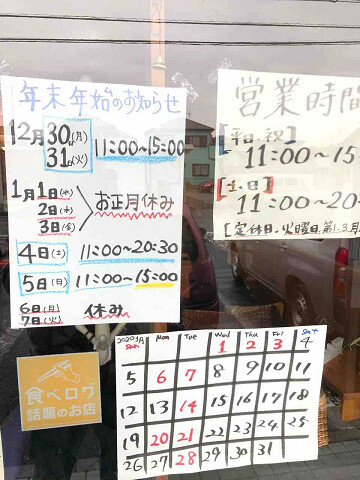 年末年始のお知らせ
12月30(月)
31(火)
11:00~15:00
1月1日(水)
2日(木)
3日(金)
お正月休み
4日(土) 11:00~20:30
5日(日) 11:00~15:00
6日(月)
7日(火)
休み
営業時間
[平日、祝]
11:00~15
[土.日]
11:00~20
[定休日.火曜日.第1.3月
食べログ
話題のお店
2020 1月
Sun Mon Tue Wed Thu Fri Sat
1 2 3 4
5 6 7 8 9 10 11
12 13 14 15 16 17 18
19 20 21 22 23 24 25
26 27 28 29 30 31